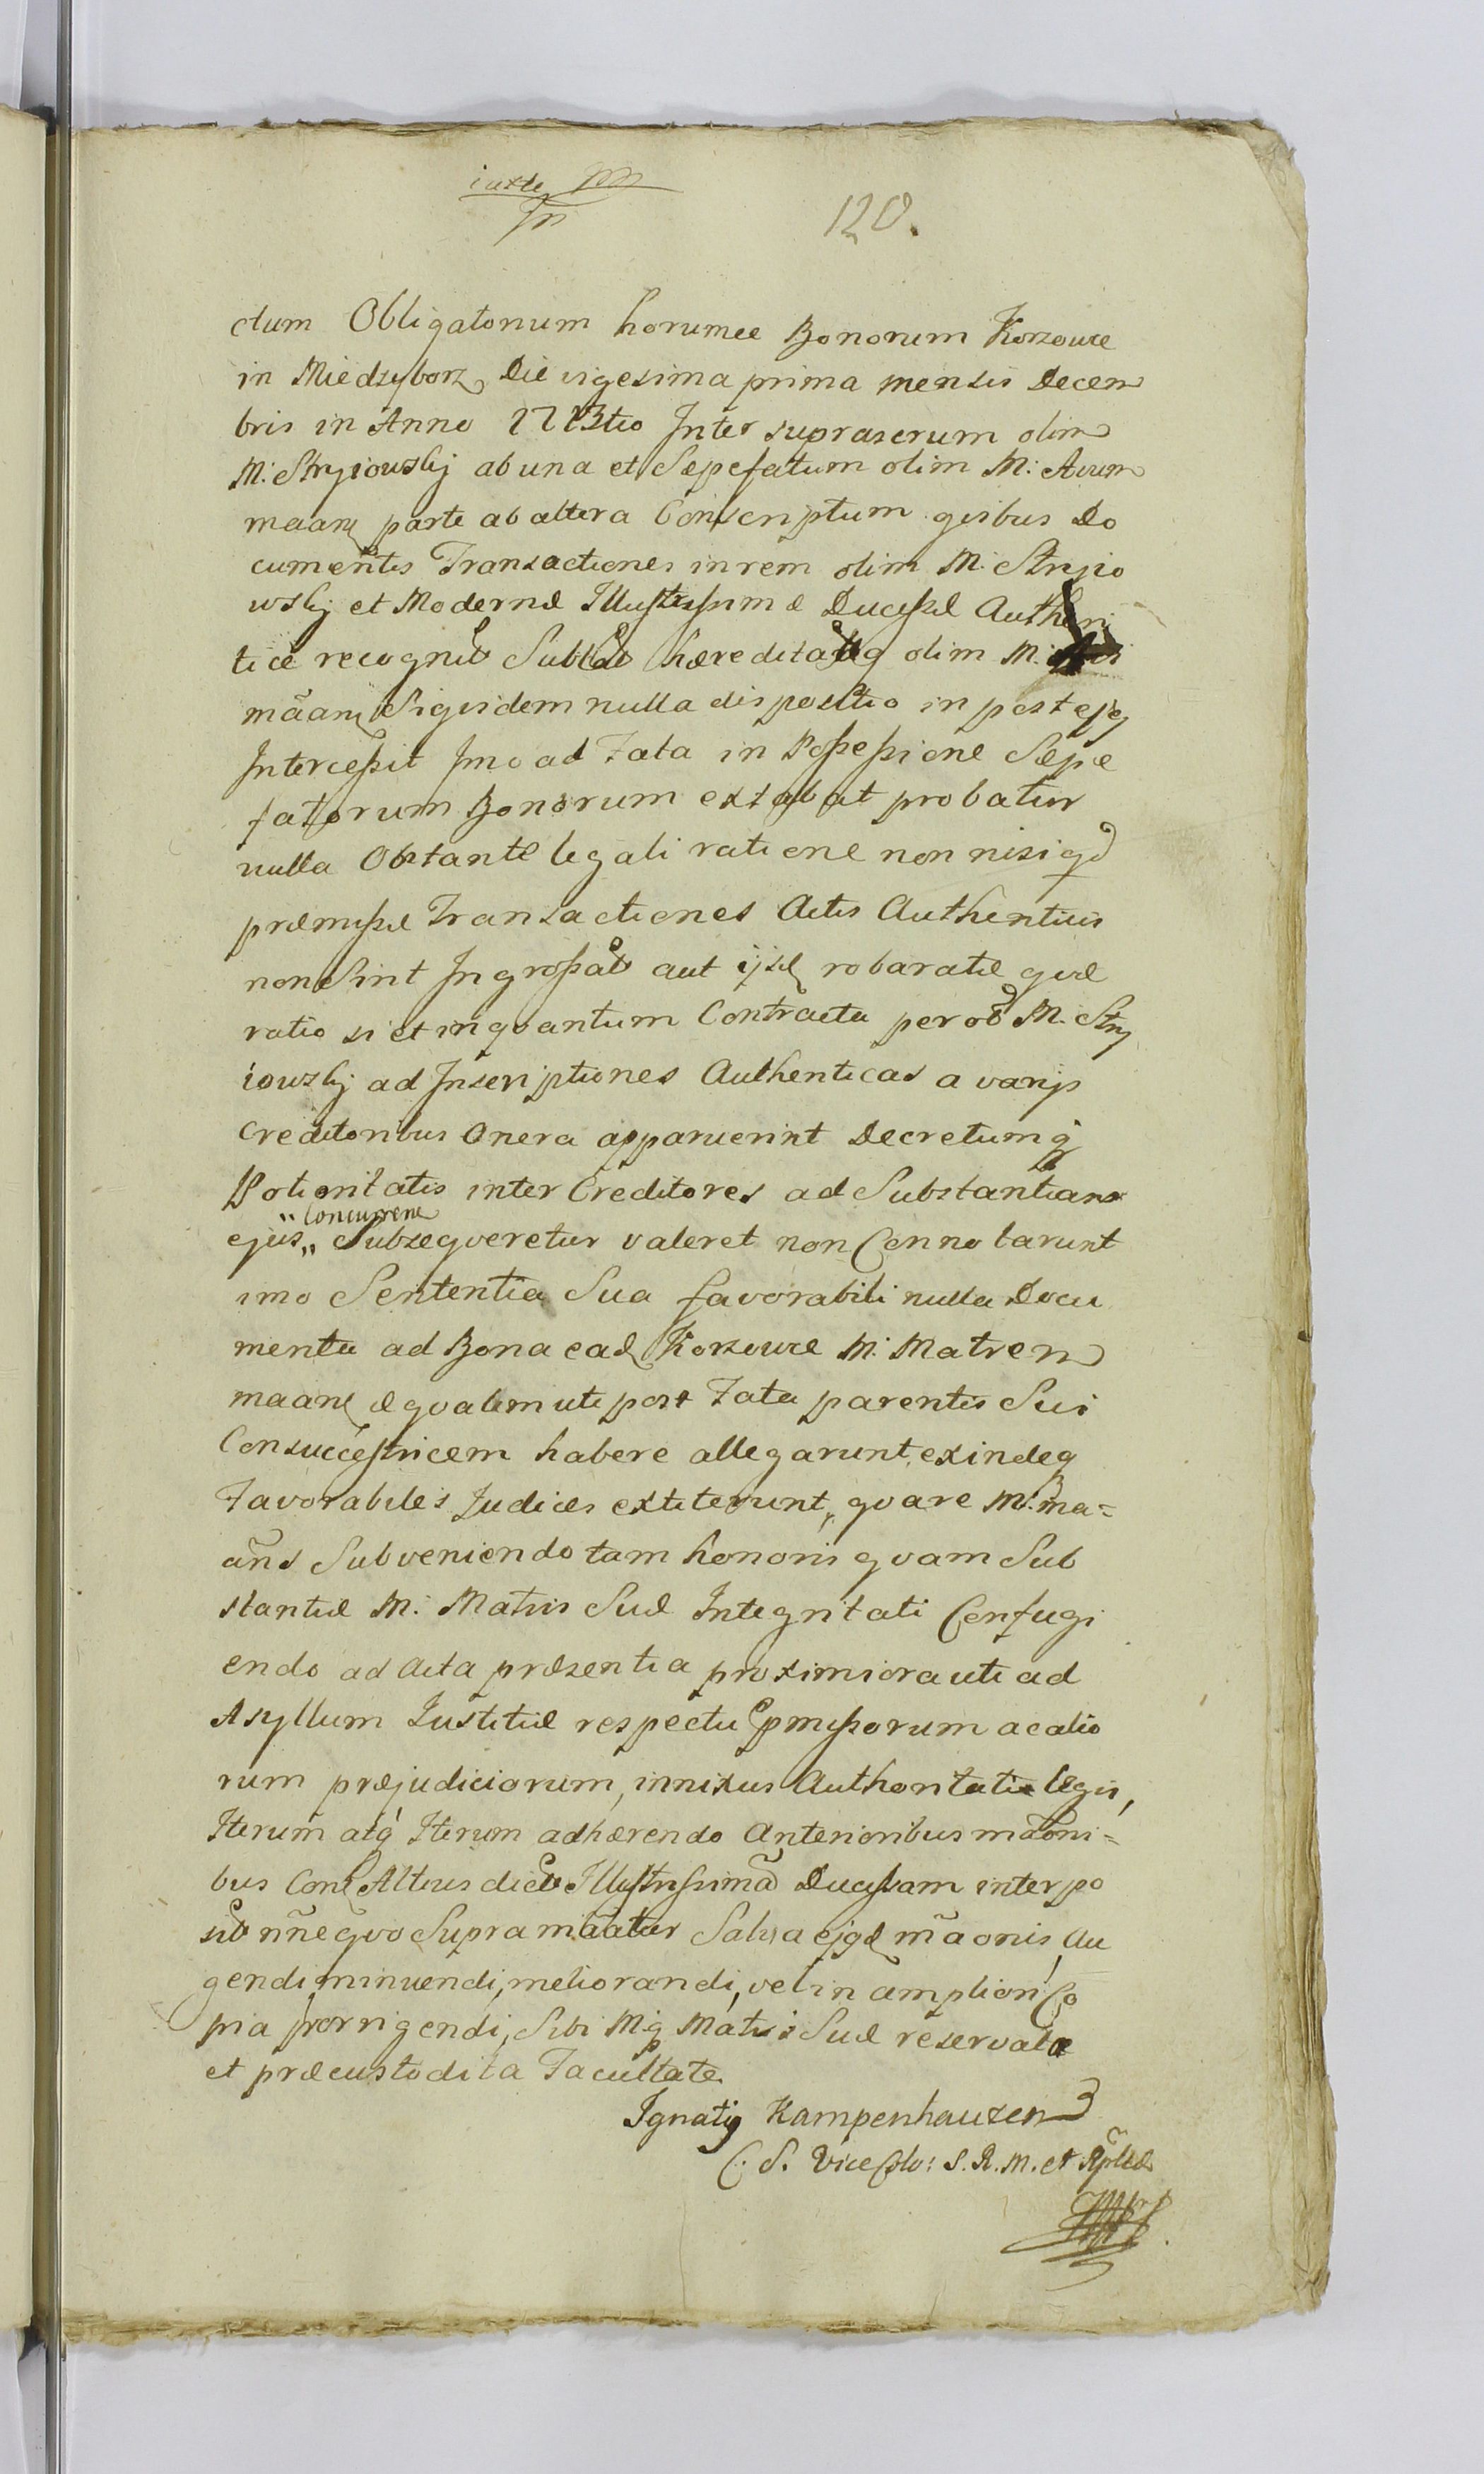 iuxta
120.
ctum Obligatorium horumce Bonorum Korzowce
in Miedzyborz Die vigesima prima mensis Decem
bris in Anno 1713tio Inter suprascrum olim
M: Stryiowskij ab una et Sæpefatum olim M: Avum
maanť parte ab altera Conscriptum qvibus Do
cumentis Transactiones in rem olim M. Stryio
wskij et Modernæ Illustrissimæ Ducissæ Authen
tice recognit Sublat hæreditateq olim M.
mãanť Siqvidem nulla dispositio in post ejq
Intercessit Imo ad Fata in Possessione Sæpe
fatorum Bonorum extabat probatur
nulla Obstante legali ratione non nisi qd
præmissæ Transactiones Actis Authenticis
non Sint Ingrossat aut ijsd robaratæ qvæ
ratio si et inqvantum Contracta per od M. Stry
iowskij ad Inscriptiones Authenticas a varijs
Creditoribus Onera apparuerint Decretumq
Potioritatis inter Creditores ad Substantiam
"Concurrene
ejus„ Subseqveretur valeret non Connotarunt
imo Sententia Sua favorabili nulla Docu
menta ad Bona ead Korzowce M. Matrem
maanť æqvalem uti post Fata parentis Sui
Consuccestricem habere allegarunt, exindeq
Favorabiles Judices extiterunt, qvare M. ma=
ans Subveniendo tam honoris qvam Sub
stantiæ M: Matris Suæ Integritati Confugi
endo ad Acta præsentia proximiora uti ad
Asyllum Justitiæ respectu pmissorum ac alio
rum præjudiciorum, innixus Authoritate legis,
Iterum atq Iterum adhærendo Anterioribus mãoni=
bus Con Altius dict Illustrissimã Ducissam interpo
sit nñe qvo Supra mãatur Salva ejqd mãonis, Au
gendi, minuendi, meliorandi, vel in ampliori Co
pia porrigendi, Sibi Mq Matri Suæ reservata
et præcustodita Facultate
Ignatiq Kampenhauzen
C. S. Vice Colo: S. R. M. et Rplcæ